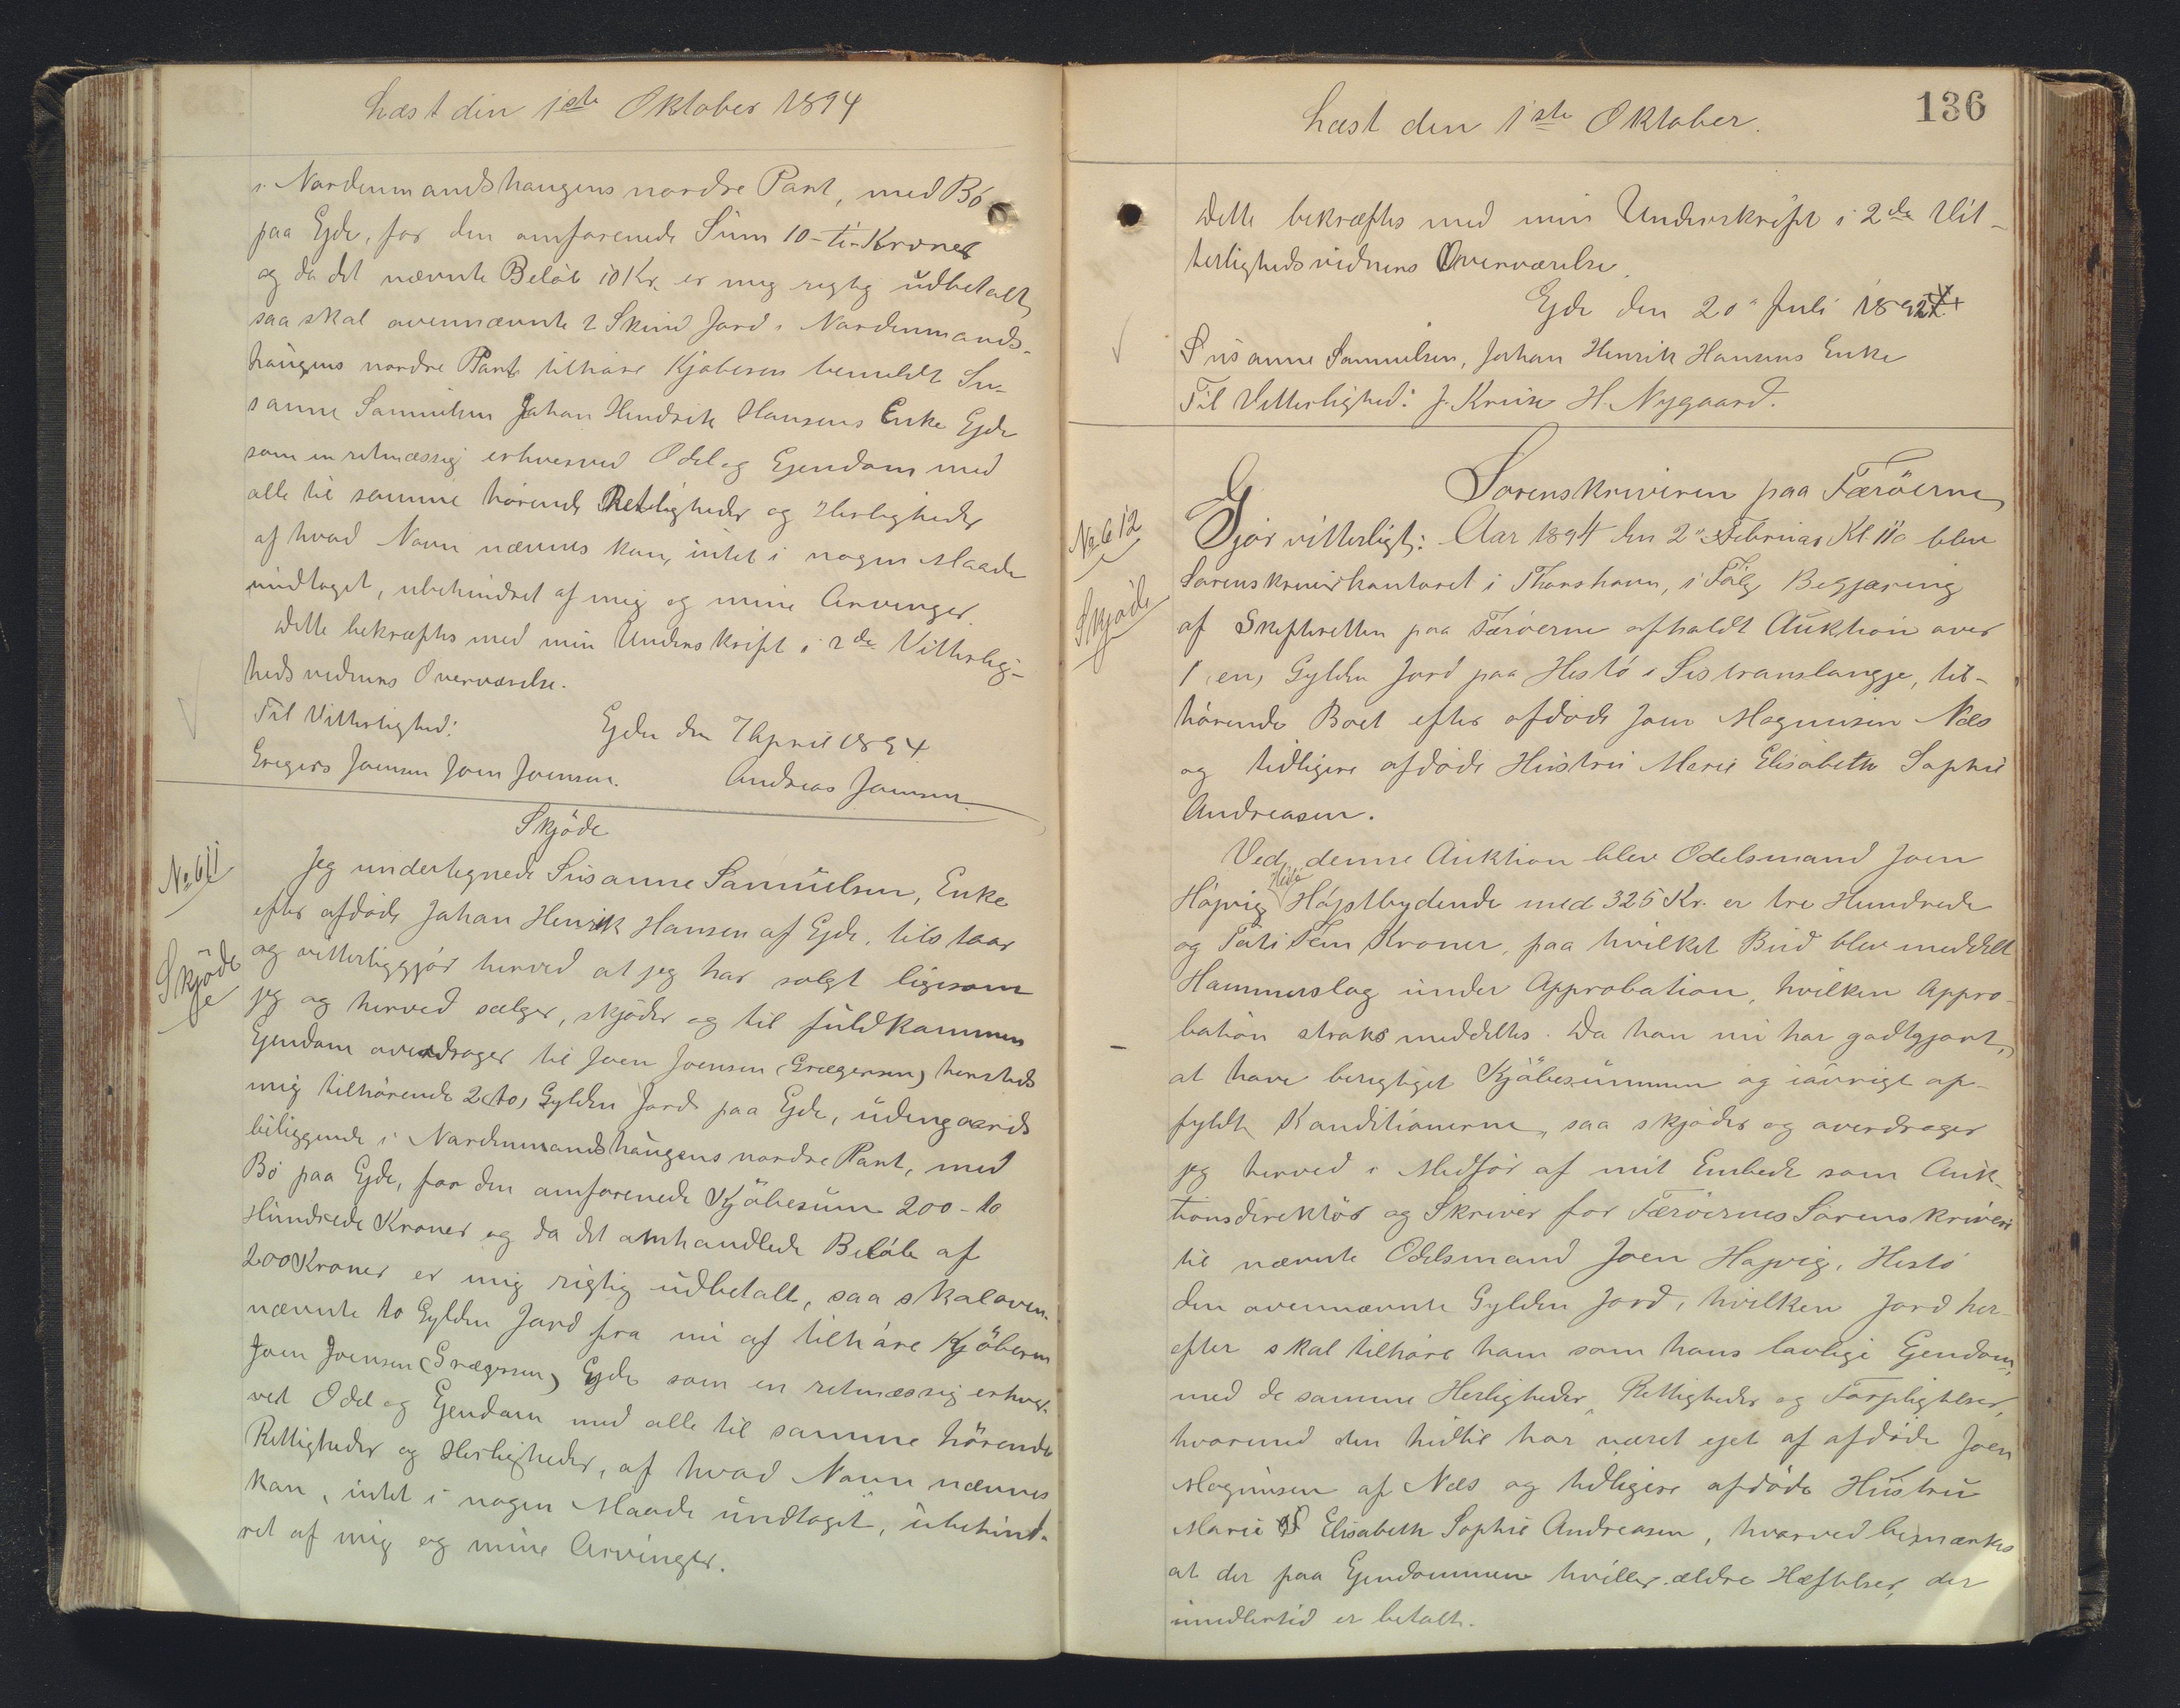 Læst den 1ste Oktober 1894
i Nordenmandshaugens nordre Part, med Bø
paa Ejde, for den omforenede Sum 10 - ti - Kroner
og da det nævnte Beløb 10 Kr. er mig rigtig udbetalt,
saa skal ovennævnte 2 Skind Jord i Nordenmands-
haugens nordre Part tilhøre Kjøberen bemeldt Su-
sanne Samuelsen Johan Hendrik Hansens Enke Ejde
som en retmæssig erhverved Odel og Ejendom med
alle til samme hørende Rettigheder og Herligheder
af hvad Navn nævnes kan, intet i nogen Maade
undtaget, ubehindret af mig og mine Arvinger.
Dette bekræftes med min Underskrift i 2de Vitterlig-
hedsvidners Overværelse.
Til Vitterlighed: Ejde den 7 April 1894
Gregers Joensen Joen Joensen. Andreas Joensen
Skjøde
No 611
Skjøde
Jeg undertegnede Susanne Samuelsen, Enke
efter afdøde Johan Henrik Hansen af Ejde, tilstaar
og vitterliggjør herved at jeg har solgt ligesom
jeg og herved sælger, skjøder og til fuldkommen
Ejendom overdrager til Joen Joensen (Grægersen) hersteds
mig tilhørende 2 (to) Gylden Jord paa Ejde, udengaards
beliggende i Nordenmandshaugens nordre Part, med
Bø paa Ejde, for den omforenede Kjøbesum 200 - to
Hundrede Kroner og da det omhandlede Beløb af
200 Kroner er mig rigtig udbetalt, saa skal oven-
nævnte to Gylden Jord fra nu af tilhøre Kjøberen
Joen Joensen (Grægersen) Ejde som en retmæssig erhver-
vet Odel og Ejendom med alle til samme hørende
Rettigheder og Herligheder, af hvad Navn nævnes
kan, intet i nogen Maade undtaget, ubehind-
ret af mig og mine Arvinger.
Læst den 1ste Oktober.
136
Dette bekræftes med min Underskrift i 2de Vit-
terlighedsvidners Overværelse.
Ejde den 20" Juli 1892
Susanne Samuelsen, Johan Henrik Hansens Enke
Til Vitterlighed: J. Kruse H. Nygaard.
No 612
Skjøde
Sorenskriveren paa Færøerne
Gjør vitterligt: Aar 1894 den 2" Februar Kl. 11 blev
Sorenskriverkontoret i Thorshavn, i Følg Begjæring
af Skifteretten paa Færøerne afholdt Auktion over
1 (en) Gylden Jord paa Hestø i Sistranslangje, til-
hørende Boet efter afdøde Joen Magnusen Næs
og tidligere afdøde Hustru Marie Elisabeth Sophie
Andreasen.
Ved denne Auktion blev Odelsmand Joen
Højvig Hestø Højstbydende med 325 Kr. er tre Hundrede
og Tøti Fem Kroner, paa hvilket Bud blev meddelt
Hammerslag under Approbation, hvilken Appro-
bation straks meddeltes. Da han nu har godtgjort,
at have berigtiget Kjøbesummen og iøvrigt op-
fyldt Konditionerne, saa skjøder og overdrager
jeg herved i Medfør af mit Embede som Auk-
tionsdirektør og Skriver for Færøernes Sorenskriveri
til nævnte Odelsmand Joen Højvig, Hestø
den ovennævnte Gylden Jord, hvilken Jord her-
efter skal tilhøre ham som hans lovlige Ejendom,
med de samme Herligheder, Rettigheder og Forpligtelser,
hvormed den hidtil har været ejet af afdøde Joen
Magnusen af Næs og tidligere afdøde Hustru
Marie Elisabeth Sophie Andreasen, hvorved bemærkes
at der paa Ejendommen hviller ældre Hæftelser, der
imidlertid er betalt.